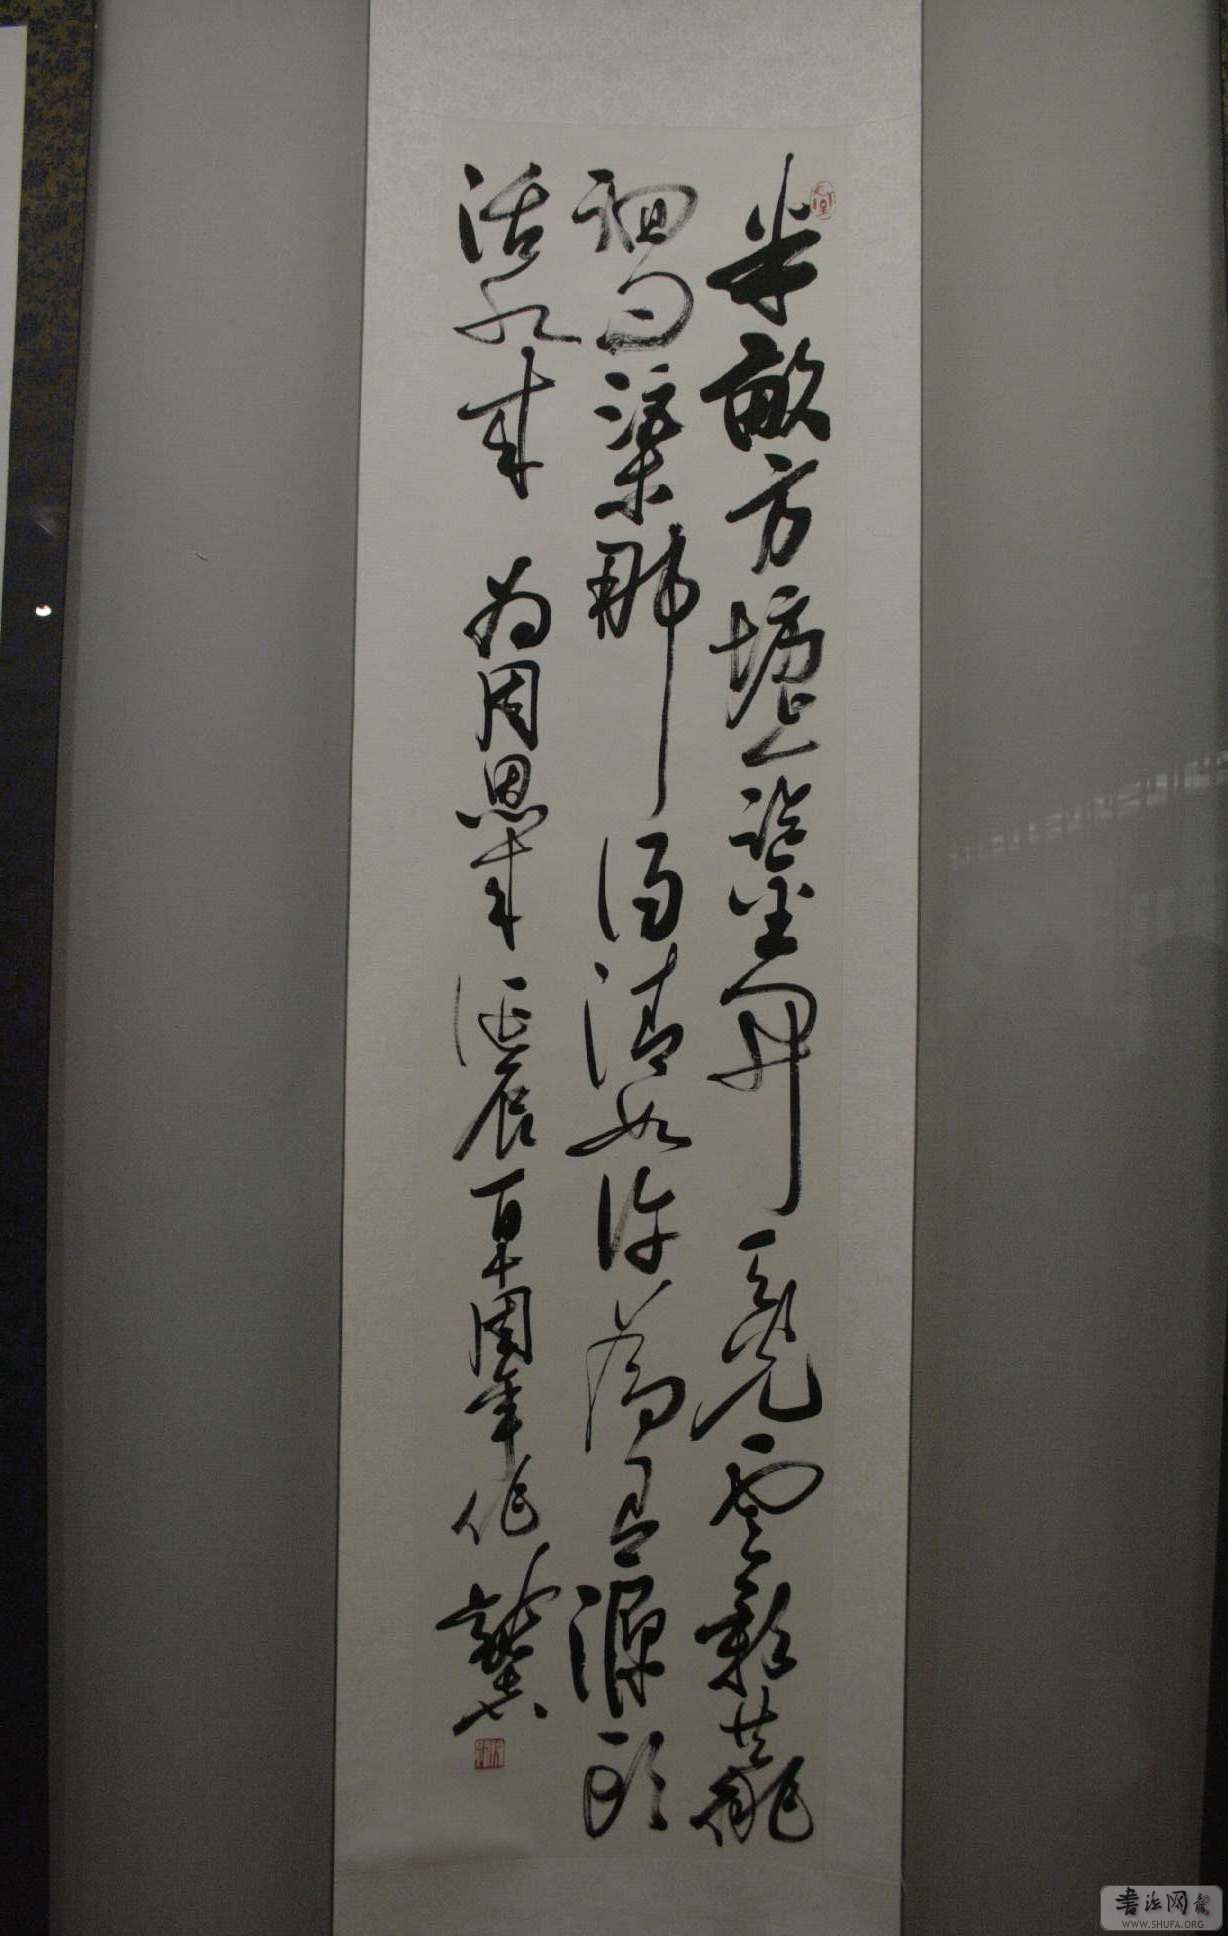 半畝方塘一鑒開天光雲影共徘
徊問渠那得清如許為有源頭
活水來 为周恩來誕辰百十周年作 龔
書法网
WWW.SHUFA.ORG